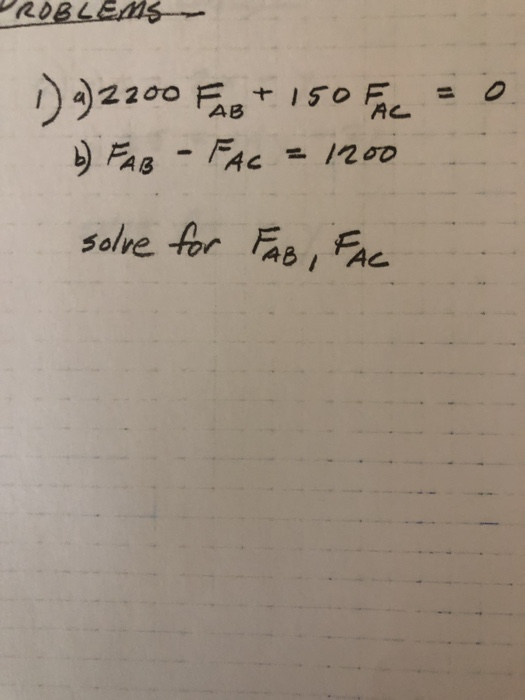 PROBLEMS
1) a) 2200 F_AB + 150 F_AC = 0
b) F_AB - F_AC = 1200
solve for F_AB, F_AC